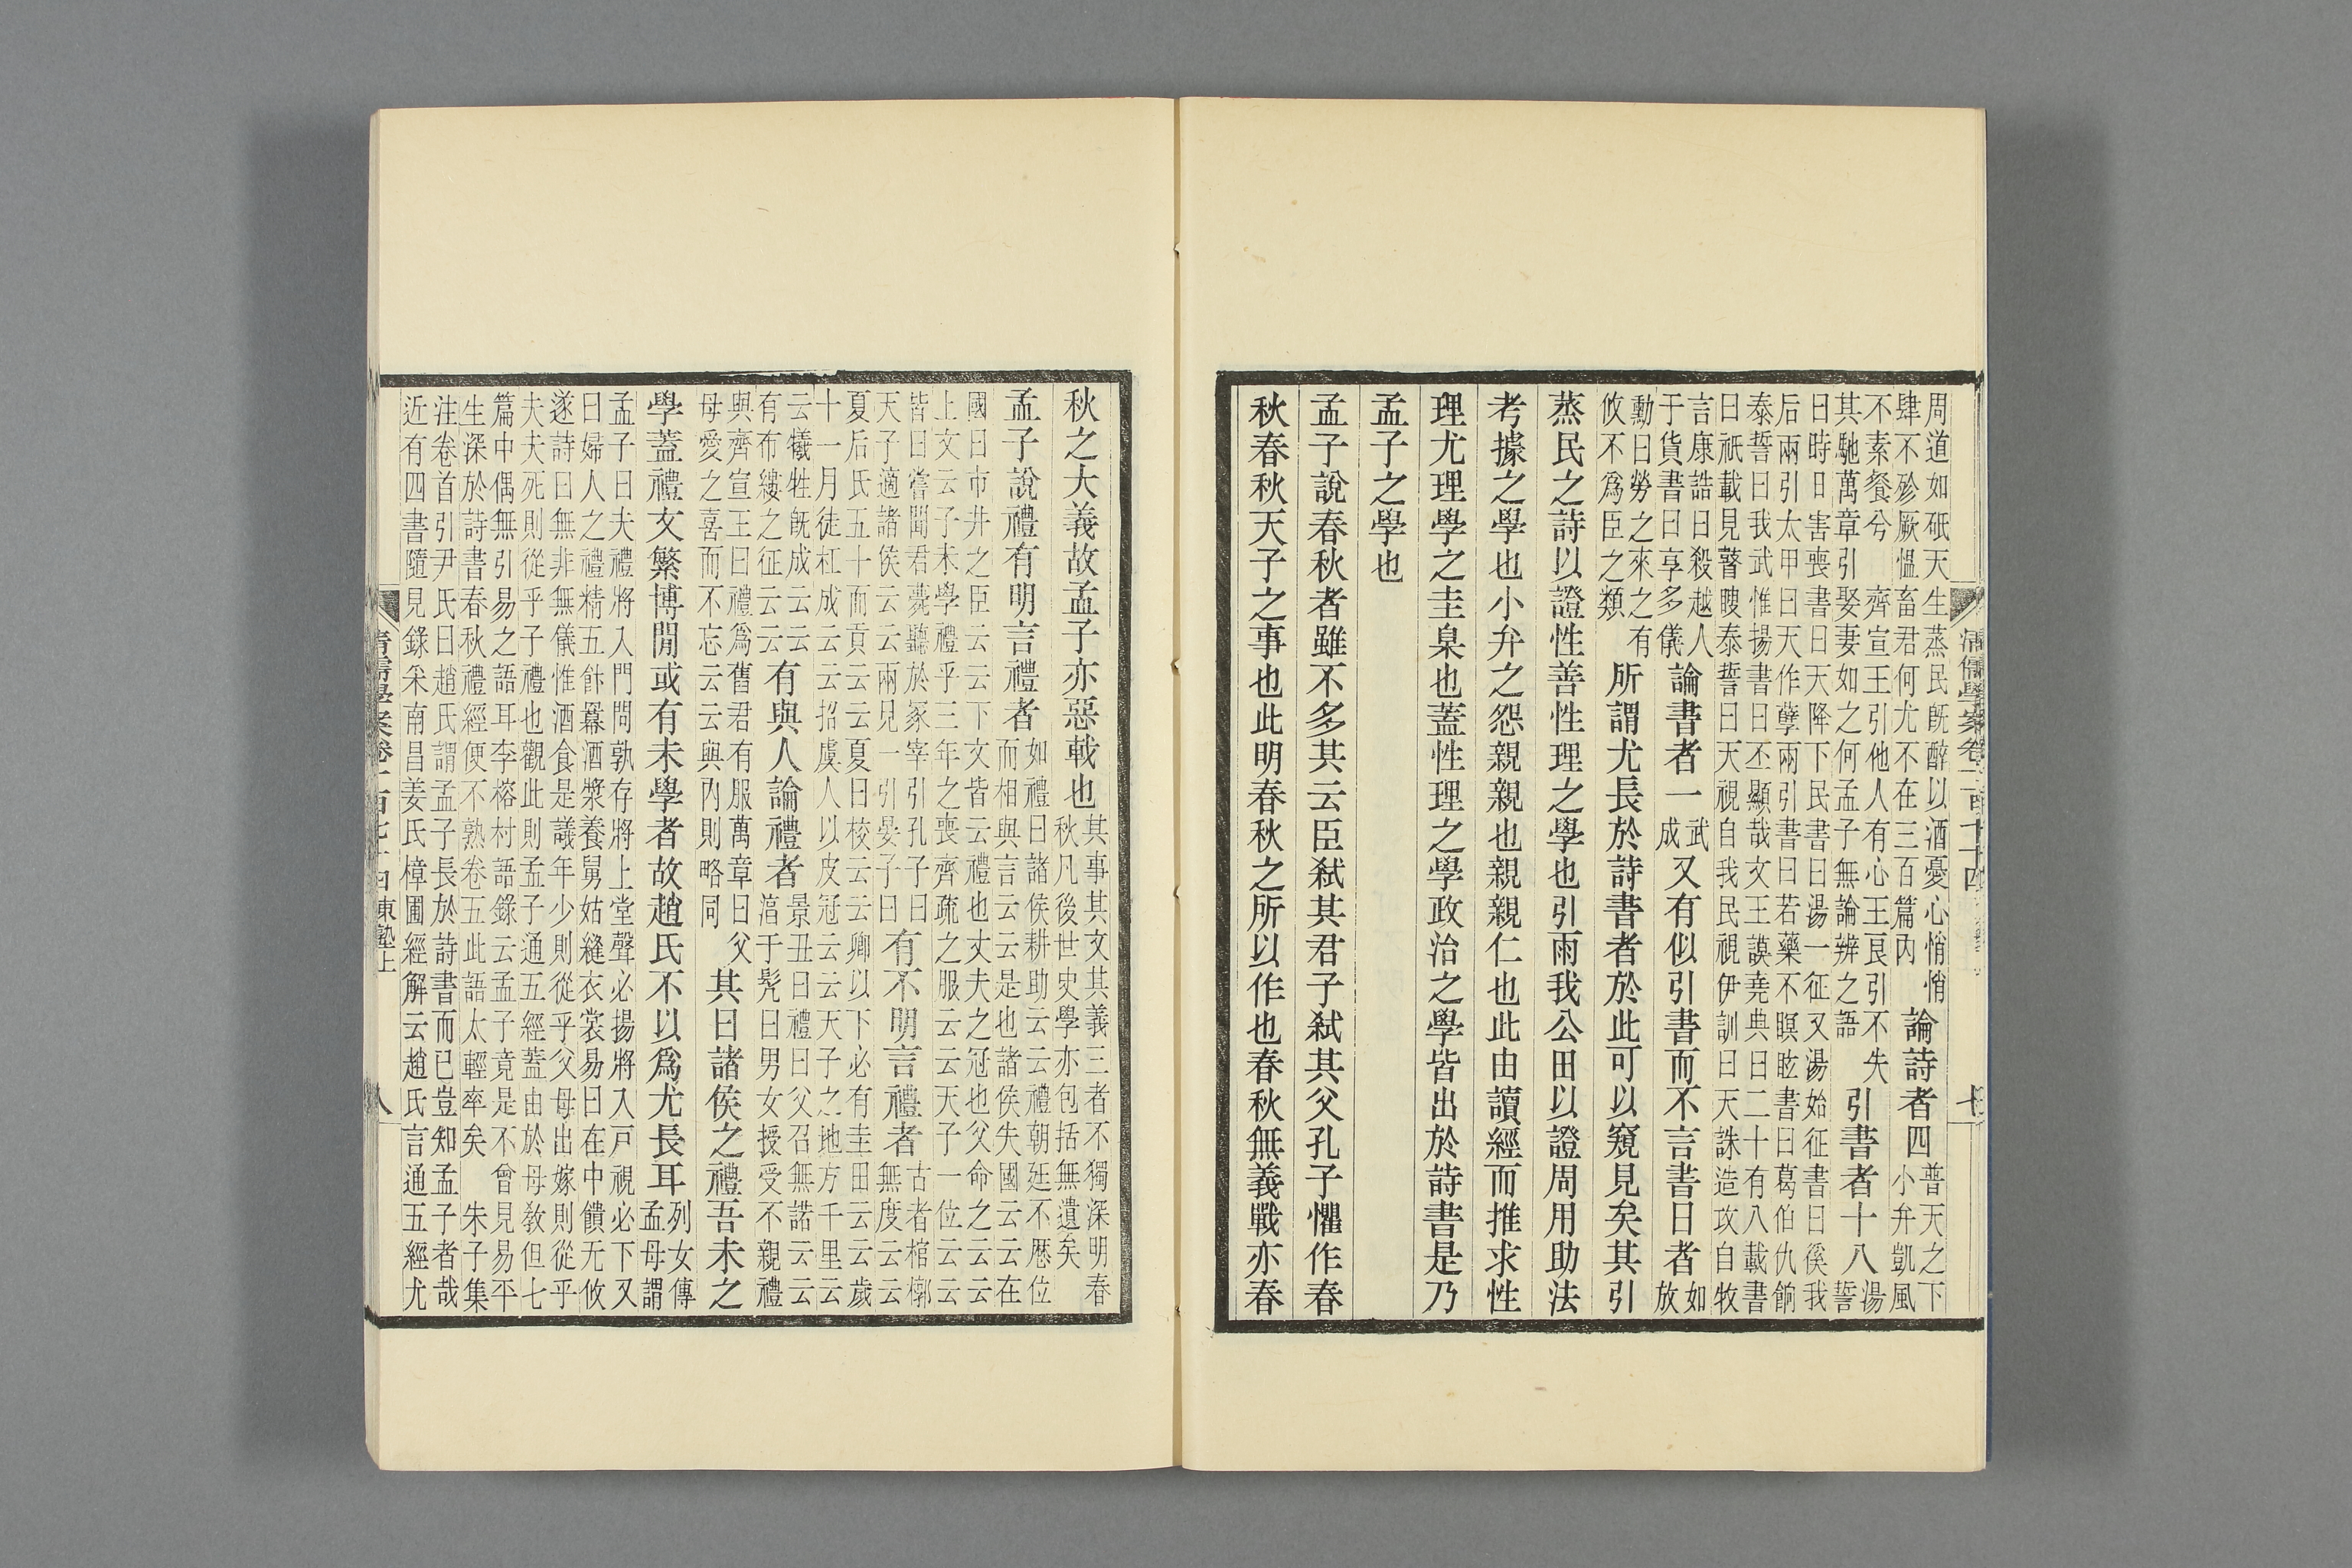 清儒學案卷一百七十四
七
周道如砥天生蒸民既醉以酒憂心悄悄
肆不殄厥慍畜君何尤不在三百篇內
論詩者四
普天之下
小弁凱風
不素餐兮 齊宣王引他人有心王良引不失
其馳萬章引娶妻如之何孟子無論辨之語
引書者十八
湯
誓
曰時日害喪書曰天降下民書曰湯一征又湯始征書曰徯我
后兩引太甲曰天作孽兩引書曰若藥不瞑眩書曰葛伯仇餉
泰誓曰我武惟揚書曰丕顯哉文王謨堯典曰二十有八載書
曰祇載見瞽瞍泰誓曰天視自我民視伊訓曰天誅造攻自牧
言康誥曰殺越人
于貨書曰享多儀
論書者一
武
成
又有似引書而不言書曰者
如
放
勳曰勞之來之有
攸不爲臣之類
所謂尤長於詩書者於此可以窺見矣其引
蒸民之詩以證性善性理之學也引雨我公田以證周用助法
考據之學也小弁之怨親親也親親仁也此由讀經而推求性
理尤理學之圭臬也蓋性理之學政治之學皆出於詩書是乃
孟子之學也
孟子說春秋者雖不多其云臣弒其君子弒其父孔子懼作春
秋春秋天子之事也此明春秋之所以作也春秋無義戰亦春
秋之大義故孟子亦惡載也
其事其文其義三者不獨深明春
秋凡後世史學亦包括無遺矣
孟子說禮有明言禮者
如禮曰諸侯耕助云云禮朝廷不歷位
而相與言云云是也諸侯失國云云在
國曰市井之臣云云下文皆云禮也丈夫之冠也父命之云云
上文云子未學禮乎三年之喪齊疏之服云云天子一位云云
皆曰嘗聞君薨聽於冢宰引孔子曰
天子適諸侯云云兩見一引晏子曰
有不明言禮者
古者棺槨
無度云云
夏后氏五十而貢云云夏曰校云云卿以下必有圭田云云歲
十一月徒杠成云云招虞人以皮冠云云天子之地方千里云
云犧牲既成云云
有布縷之征云云
有與人論禮者
景丑曰禮曰父召無諾云云
淳于髡曰男女授受不親禮
與齊宣王曰禮爲舊君有服萬章曰父
母愛之喜而不忘云云與內則略同
其曰諸侯之禮吾未之
學蓋禮文繁博閒或有未學者故趙氏不以爲尤長耳
列女傳
孟母謂
孟子曰夫禮將入門問孰存將上堂聲必揚將入戶視必下又
曰婦人之禮精五飰羃酒漿養舅姑縫衣裳易曰在中饋无攸
遂詩曰無非無儀惟酒食是議年少則從乎父母出嫁則從乎
夫夫死則從乎子禮也觀此則孟子通五經蓋由於母教但七
篇中偶無引易之語耳李榕村語錄云孟子竟是不曾見易平
生深於詩書春秋禮經便不熟卷五此語太輕率矣 朱子集
注卷首引尹氏曰趙氏謂孟子長於詩書而已豈知孟子者哉
近有四書隨見錄采南昌姜氏樟圃經解云趙氏言通五經尤
清儒學案卷一百七十四 東塾上
八